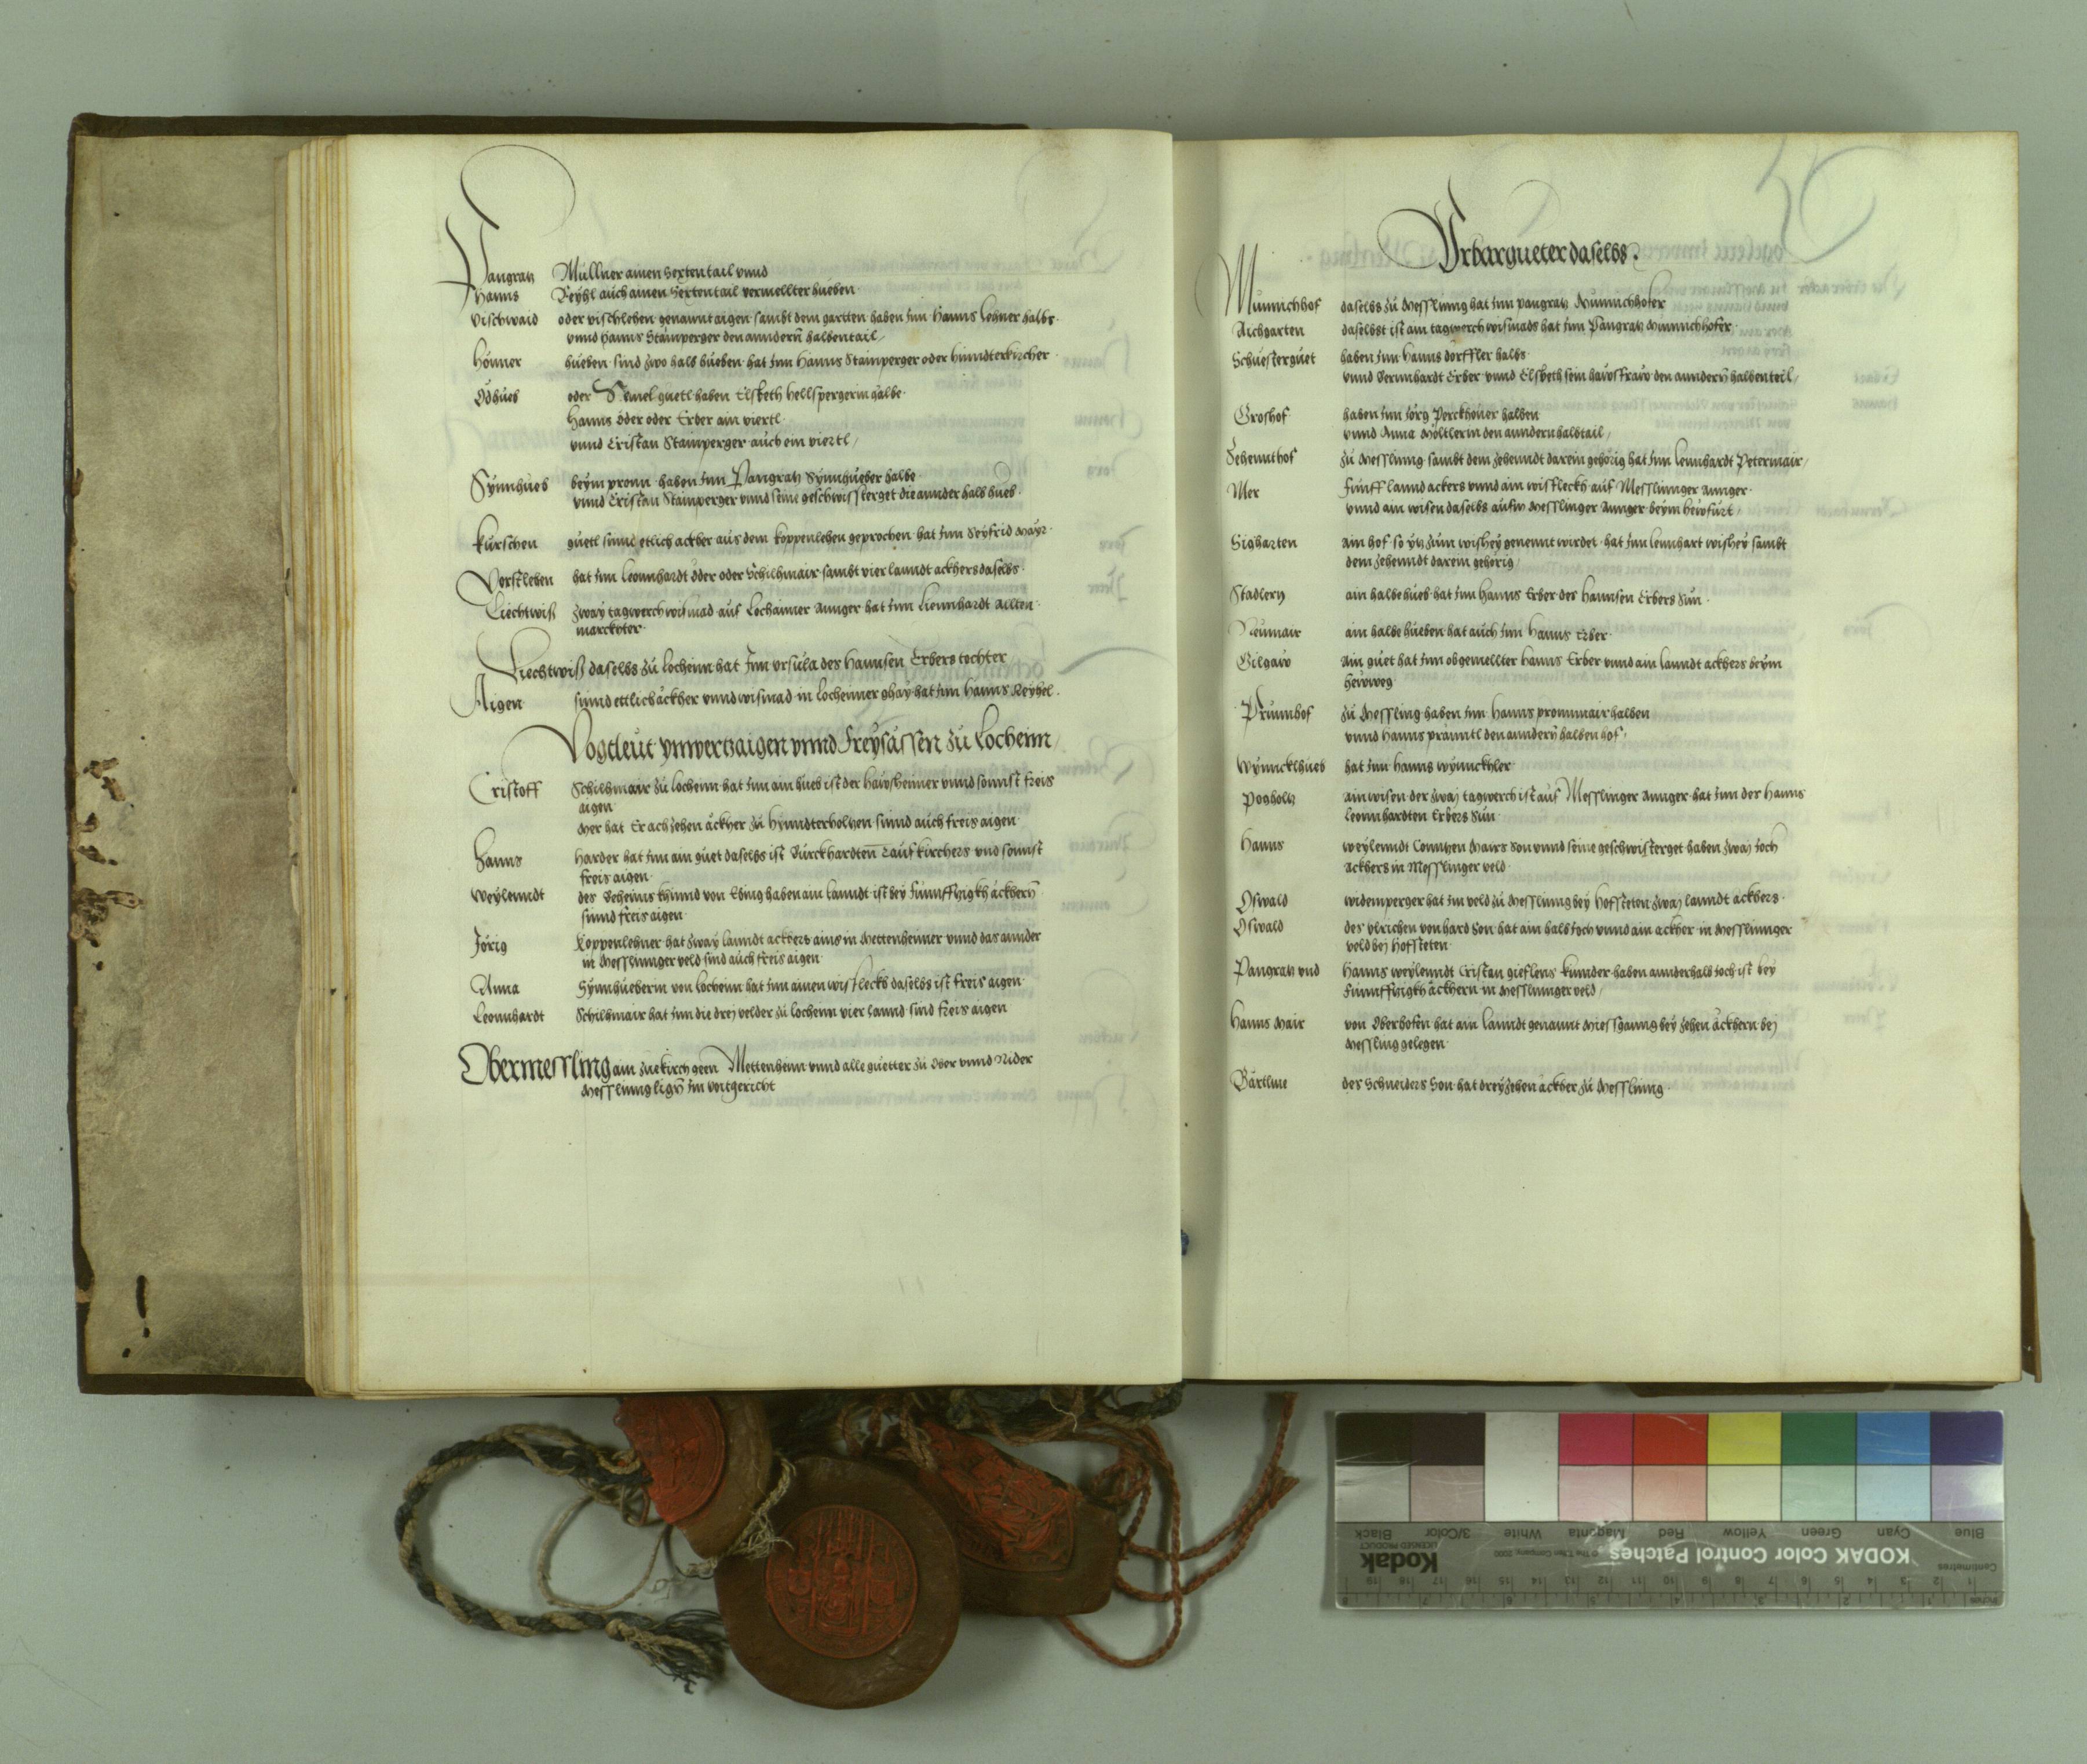 Pangratz Müllner ainen Sexten tail vnnd
Hanns Reyhl auch ainen Sexten tail vermellter hueben
Vischwaid oder vischlehen genannt aigen sambt dem gartten haben jnn Hanns Lehner halbs
vnnd Hanns Stamperger den anndern halben tail
Hönner hueben sind zwo halb hueben hat jnn Hanns Stamperger oder hinndterkircher
Ödhueb oder Semelguetl haben Elspeth hellspergerin halbe
Hanns öder oder Erber ain viertl
vnnd Cristan Stamperger auch ein viertl
Synnhueb beym pronn haben jnn Pangratz Synnhueber halbe
vnnd Cristan Stamperger vnnd seine geschwisterget die annder halb hueb
Kürschen güetl sinnd etlich ackher aus dem koppenlehen geprochen hat jnn Seyfrid Mayr
Vorstlehen hat jnn Leonnhardt öder oder Schilhmair sambt vier lanndt ackhers daselbs
Liechtwiß zway tagwerch wismad auf Lochaimer Annger hat jnn Liennhardt Allten
marckhter
Liechtwiß daselbs zu Lochenn hat jnn vrsula des Hannsen Erbers tochter
Aigen sinnd ettlich äckher vnnd wismad in Locheimer ghay hat jnn Hanns Reyhel
Vogtleut ynwertzaigen vnnd freysässen zu Lochenn
Cristoff Schilhmair zu Lochenn hat jnn ain hueb ist der Hawsheimer vnnd sonnst freis
aigen
Mer hat Er achzehen äckher zu Hinndterholtzen sinnd auch freis aigen
Hanns Harder hat jnn ain guet daselbs ist Burckhardten Taufkirchers vnd sonnst
freis aigen
Weylenndt des Behems khinnd von Ebing haben ain Lanndt ist bey fünnfftzigkh äckhern
sinnd freis aigen
Jörig Koppenlehner hat zway lanndt ackhers ains in Mettenheimer vnnd das annder
in Messlinnger veld sind auch freis aigen
Anna Synnhueberin von Lochenn hat jnn ainen wisfleckh daselbs ist freis aigen
Leonnhardt Schilhmair hat jnn die drey velder zu lochenn vier lannd sind freis aigen
Obermessling ain zuekirch geen Mettenheim vnnd alle guetter zu Ober vnnd Nider
Messlinng lign im voitgericht
Vrbargueter daselbs
Münnichhof daselbs zu Messlinng hat jnn pangratz Münnichhofer
Aichgarten daselbst ist ain tagwerch wismads hat jnn Pangratz Münnichhofer
Schuesterguet haben jnn Hanns dörffler halbs
vnnd Bernnhardt Erber vnnd Elspeth sein hawsfraw den anndern halbenteil
Groshof haben jnn Jörg Perckhouer halben
vnnd Anna Möltlerin den anndern halbtail
Zehennthof zu Messlinng sambt dem zehenndt darein gehörig hat jnn Lennhardt Petermair
Mer fünff lannd ackers vnnd ain wisfleckh auf Messlinnger Annger
vnnd ain wisen daselbs aufm Messlinger Annger beym hewfurt
Sigharten ain hof so ytz zum wishey genennt wirdet hat jnn Lennhart wishey sambt
dem zehenndt darein gehörig
Stadlern ain halbe hueb hat jnn Hanns Erber des Hannsen Erbers Sun
Neumair ain halbe hueben hat auch jnn Hanns Erber
Gilgaw Ain guet hat jnn obgemellter Hanns Erber vnnd ain lanndt ackhers beym
hewweg
Prunnhof zu Messling haben jnn Hanns pronnmair halben
vnnd Hanns pranntl den anndern halben hof
Wynncklhueb hat jnn Hanns wynnckhler
Pogholtz ain wisen der zwaj tagwerch ist auf Messlinger Annger hat jnn der Hanns
Leonnhardten Erbers Sun
Hanns weylenndt Conntzen Mairs Son vnnd seine geschwisterget haben zwaj Joch
ackhers in Messlinger veld
Oswald widemperger hat im veld zu Messlinng bey Hofsteten zwaj lanndt ackhers
Oswald des vlrichen von hard Son hat ain halb Joch vnnd ain ackher in Messlinnger
veld bej Hofsteten
Pangratz vnd Hanns weylenndt Cristan gieslens kinnder haben annderhalb Joch ist bey
fünnfftzigkh äckhern in Messlinnger veld
Hanns Mair von Oberhofen hat ain lanndt genannt Miessganng bey zehen äckhern bej
Messling gelegen
Bärtlme des Schneiders Son hat dreyzehen äckher zu Messlinng
KODAK Color Control Patches
Kodak
LICENSED PRODUCT
Blue Cyan Green Yellow Red Magenta White 3/Color Black
Centimetres
Inches